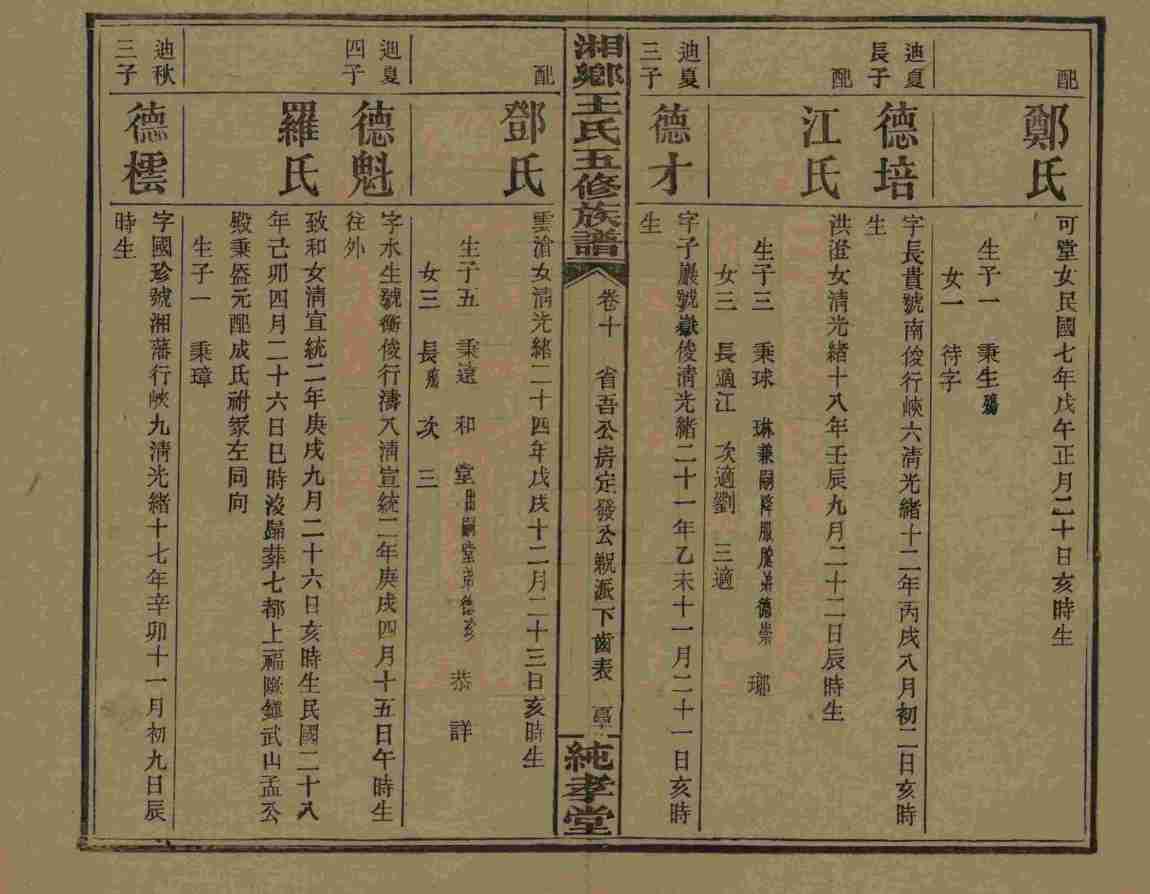 配
鄭氏
可堂女民國七年戊午正月二十日亥時生
生子一 秉生殤
女一 待字
迪夏
長子
德培
字長貴號南俊行峽六清光緒十二年丙戌八月初二日亥時
生
配
江氏
洪澄女清光緒十八年壬辰九月二十二日辰時生
生子三 秉球 琳兼嗣降服胞弟德崇 瑯
女三 長適江 次適劉 三適
迪夏
三子
德才
字子巖號嶽俊清光緒二十一年乙未十一月二十一日亥時
生
湘鄉王氏五修族譜
卷十 省吾公房定發公親派下齒表
純孝堂
配
鄧氏
雲滄女清光緒二十四年戊戌十二月二十三日亥時生
生子五 秉遠 和 堂出嗣堂弟德 恭 詳
女三 長殤 次 三
迪夏
四子
德魁
字水生號衡俊行濤八清宣統二年庚戌四月十五日午時生
往外
羅氏
致和女清宣統二年庚戌九月二十六日亥時生民國二十八
年己卯四月二十六日巳時歿歸葬七都上福 鎮武山孟公
殿秉盔元配成氏祔冢左同向
生子一 秉璋
迪秋
三子
德橒
字國珍號湘藩行峽九清光緒十七年辛卯十一月初九日辰
時生